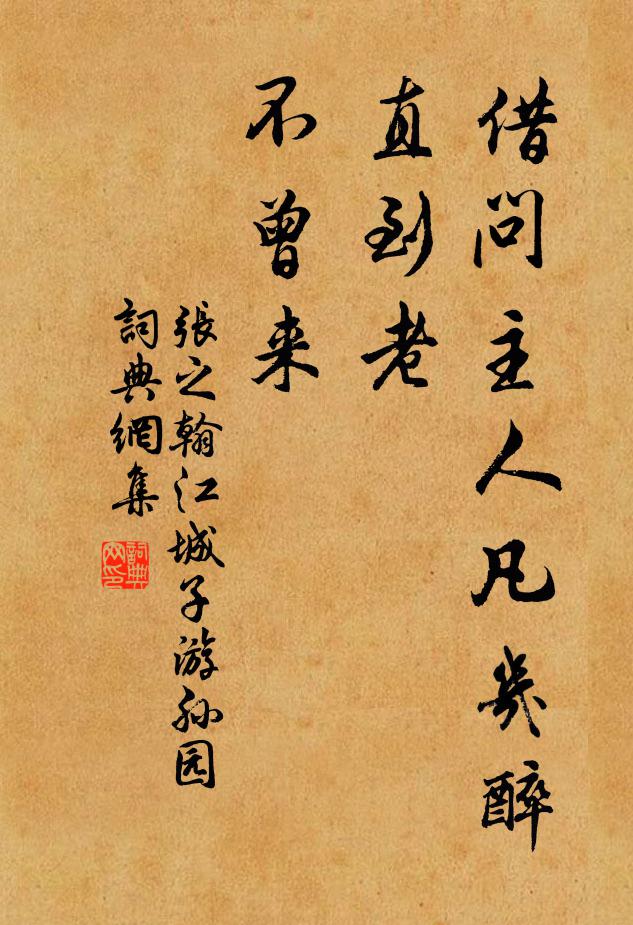 借问主人凡几醉
直到老
不曾来
張之翰江城子游孙园
詞典網集
詞典網印